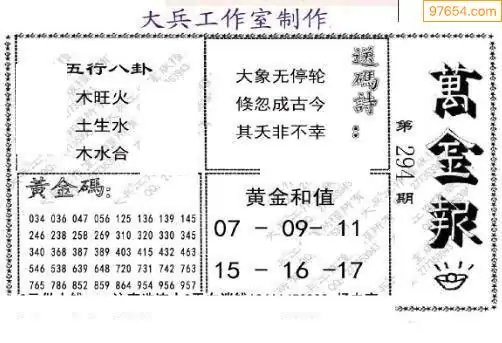 大兵工作室制作
97654.com
五行八卦
木旺火
土生水
木水合
送碼詩：
大象无停轮
倏忽成古今
其天非不幸
萬金報
第294期
黃金碼：
034 036 047 056 125 136 139 145
246 238 258 269 310 320 330 345
340 368 387 389 403 415 432 463
546 538 639 648 720 731 742 763
765 786 852 859 864 954 956 957
黄金和值
07 - 09 - 11
15 - 16 - 17